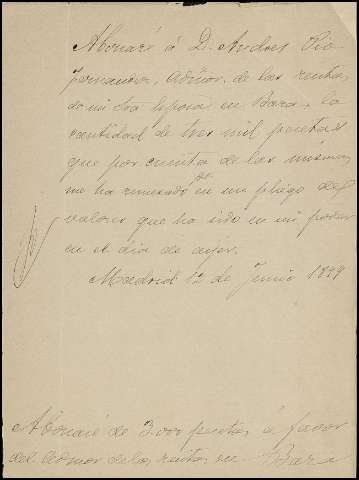 Abonaré á D. Andres Pio
Fernandez, Admor. de las rentas
de mi Sra esposa en Baza, la
cantidad de tres mil pesetas
que por cuenta de las mismas
me ha remesado en un pliego de
valores que ha sido en mi poder
en el dia de ayer.
Madrid 12 de Junio 1899
Abonaré de 3.000 pesetas á favor
del Admor de las rentas en Baza